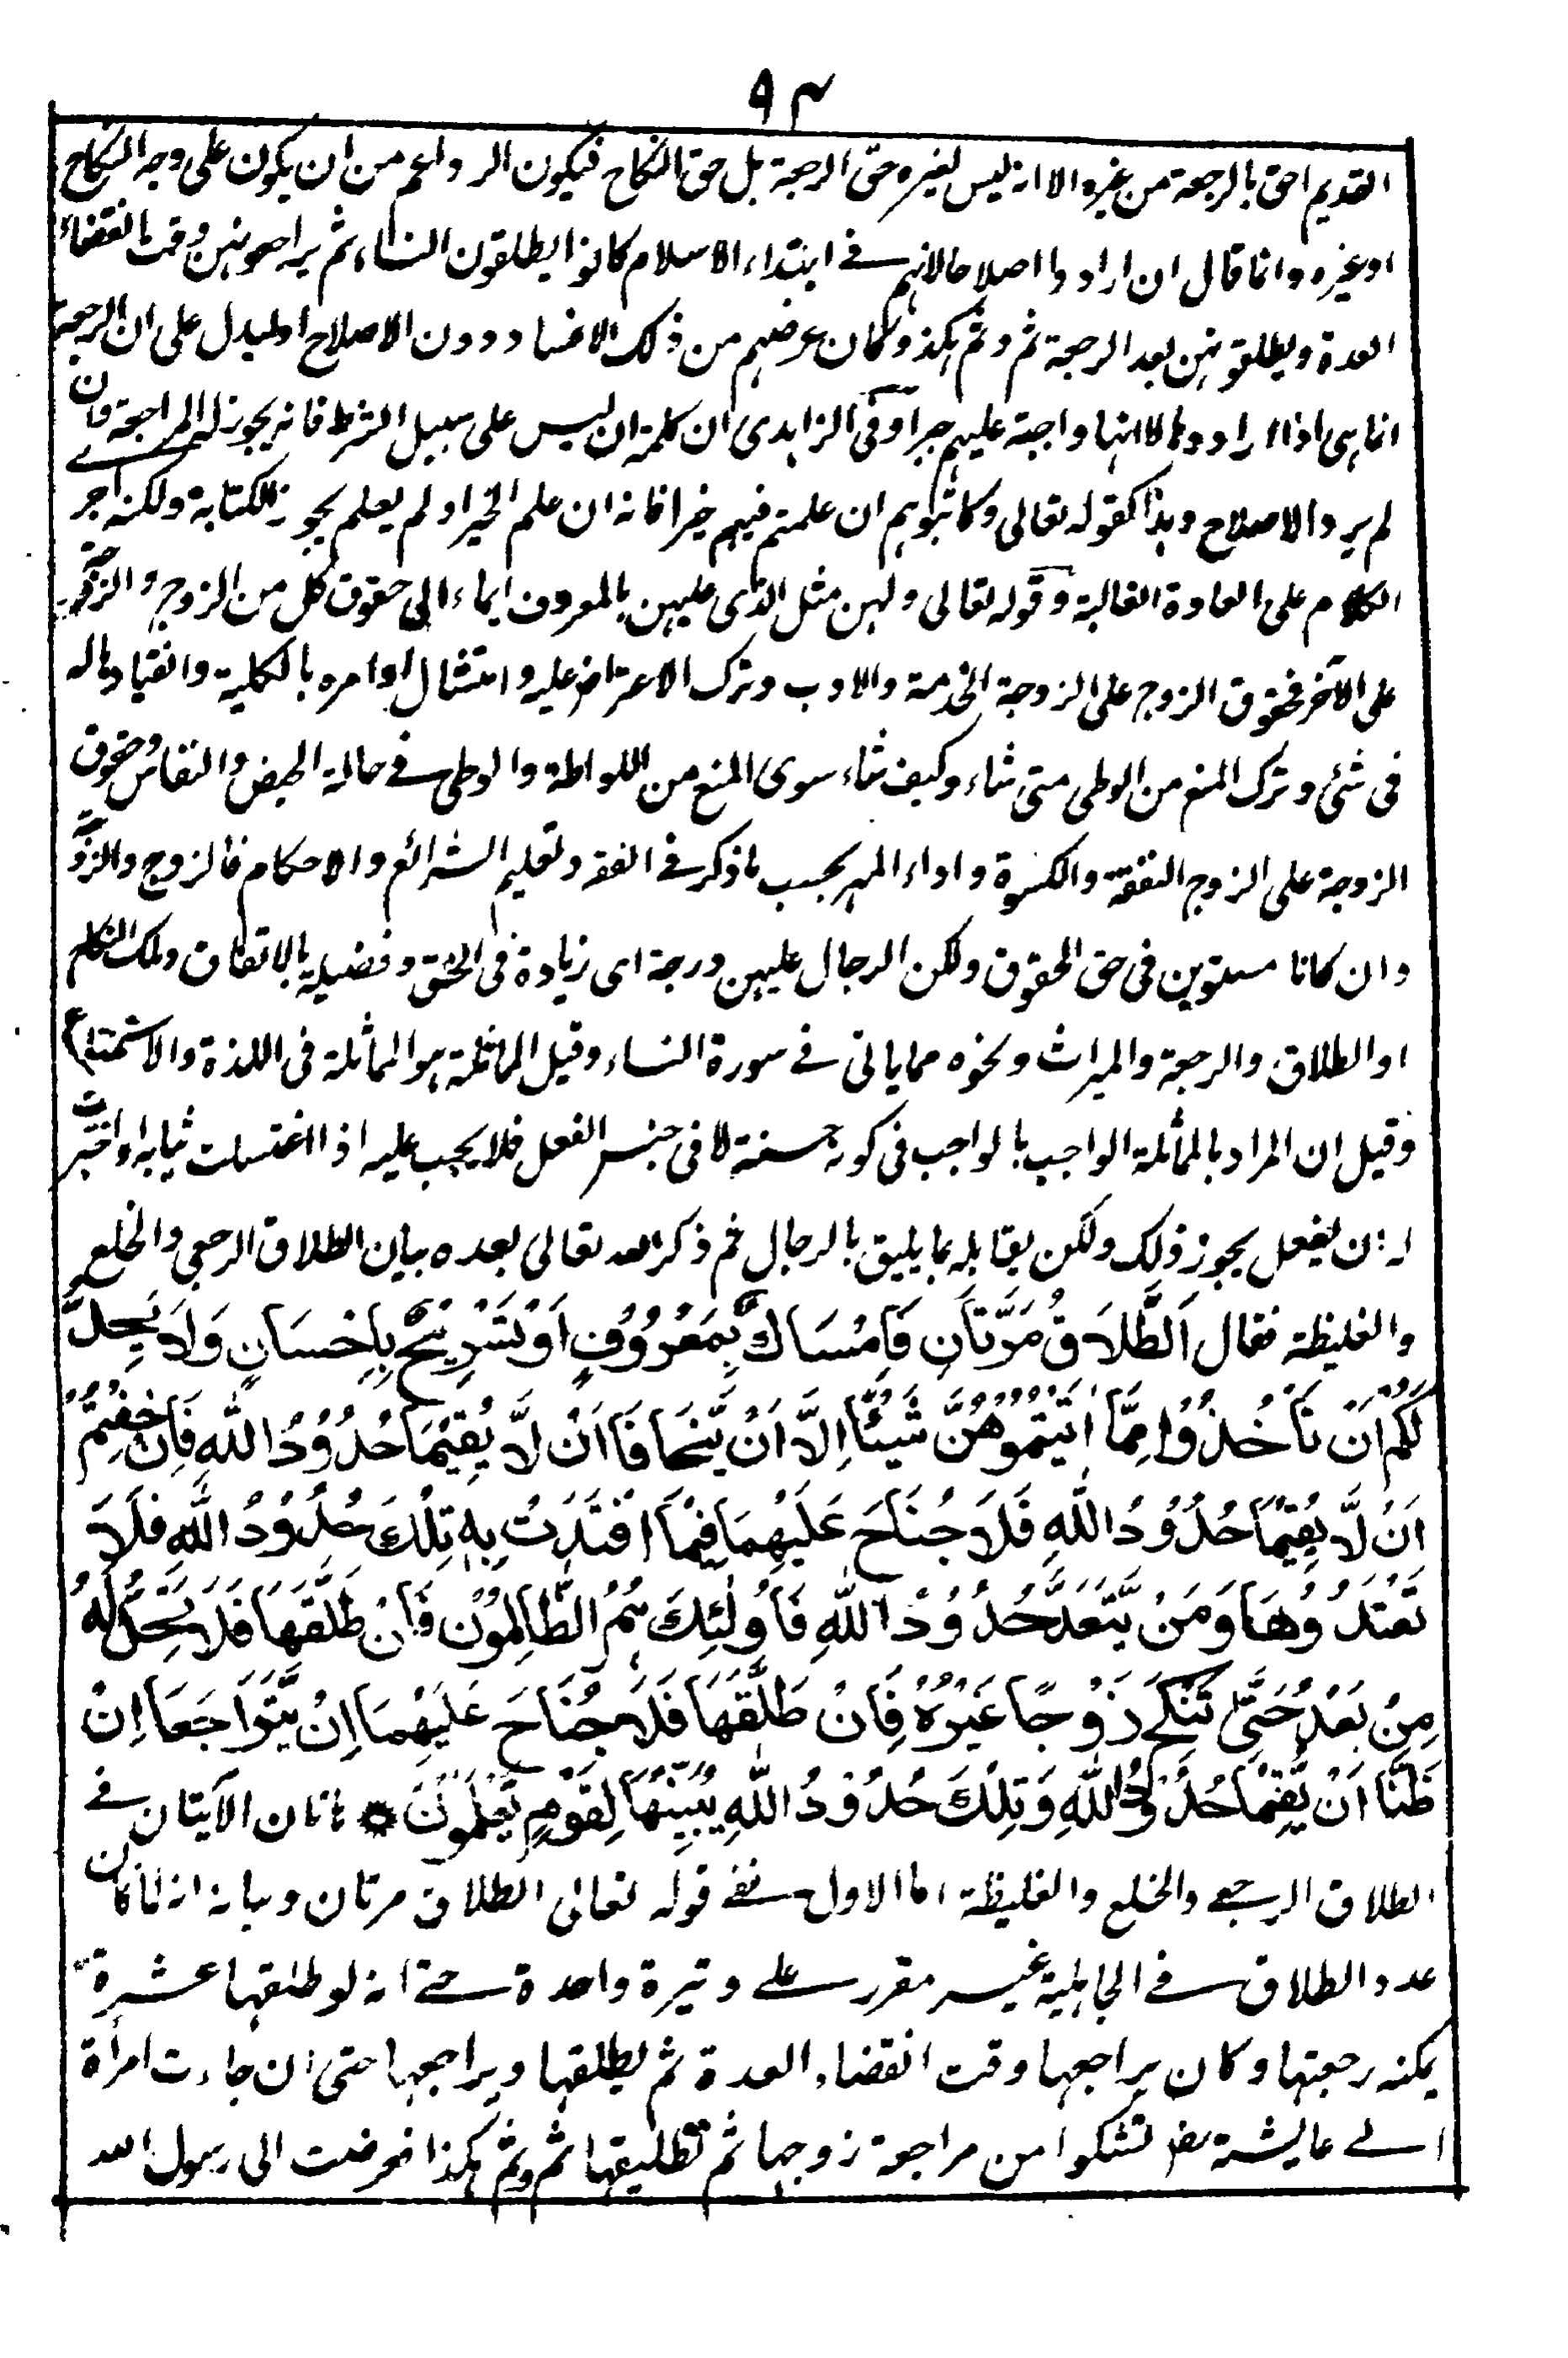 ٩٣
القديم احق بالرجعة من غيره الا انه ليس لغيره حق الرجعة بل حق النكاح فيكون الرد اعم من ان يكون على وجه النكاح
او غيره وانما قال ان ارادوا اصلاحا لانهم في ابتداء الاسلام كانوا يطلقون النساء ثم يراجعونهن وقت انقضاء
العدة ويطلقونهن بعد الرجعة ثم وثم هكذا وكان غرضهم من ذلك الافساد دون الاصلاح او ليدل على ان الرجعة
انما هي اذا ارادوها لا انها واجبة عليهم جبرا وفي الزاهدي ان كلمة ان ليس على سبيل الشرط فانه يجوز له المراجعة وان
لم يرد الاصلاح وهذا كقوله تعالى وكاتبوهم ان علمتم فيهم خيرا فانه ان علم الخير او لم يعلم يجوز الكتابة ولكنه اجر
الكلام على العادة الغالبة وقوله تعالى ولهن مثل الذي عليهن بالمعروف ايماء الى حقوق كل من الزوج والزوجة
على الآخر فحقوق الزوج على الزوجة الخدمة والادب وترك الاعتراض عليه وامتثال اوامره بالكلية وانقيادها له
في شئ وترك المنع من الوطى متى شاء وكيف شاء سوى المنع من اللواطة والوطى في حالة الحيض والنفاس وحقوق
الزوجة على الزوج النفقة والكسوة واداء المهر بحسب ما ذكر في الفقه وتعليم الشرائع والاحكام فالزوج والزوجة
وان كانا مستويين في حق الحقوق ولكن الرجال عليهن درجة اى زيادة في الحق وفضيلة بالانفاق وملك النكاح
او الطلاق والرجعة والميراث ونحوه مما ياتى في سورة النساء وقيل المماثلة هو المماثلة في اللذة والاستمتاع
وقيل ان المراد بالمماثلة الواجب بالواجب في كونه حسنة لا في جنس الفعل فلا يجب عليه اذا اغتسلت ثيابه او اختبزت
له ان يفعل يجوز ذلك ولكن يقابله بما يليق بالرجال ثم ذكر الله تعالى بعده بيان الطلاق الرجعي والخلع
والغليظة فقال اَلطَّلَاقُ مَرَّتَانِ فَاِمْسَاكٌ بِمَعْرُوْفٍ اَوْ تَسْرِيْحٌ بِاِحْسَانٍ وَلَا يَحِلُّ
لَكُمْ اَنْ تَاْخُذُوْا مِمَّا اٰتَيْتُمُوْهُنَّ شَيْئًا اِلَّا اَنْ يَّخَافَا اَنْ لَّا يُقِيْمَا حُدُوْدُ اللّٰهِ فَاِنْ خِفْتُمْ
اَنْ لَّا يُقِيْمَا حُدُوْدُ اللّٰهِ فَلَا جُنَاحَ عَلَيْهِمَا فِيْمَا افْتَدَتْ بِهٖ تِلْكَ حُدُوْدُ اللّٰهِ فَلَا
تَعْتَدُوْهَا وَمَنْ يَّتَعَدَّ حُدُوْدَ اللّٰهِ فَاُولٰئِكَ هُمُ الظّٰلِمُوْنَ فَاِنْ طَلَّقَهَا فَلَا تَحِلُّ لَهٗ
مِنْ بَعْدُ حَتّٰى تَنْكِحَ زَوْجًا غَيْرَهٗ فَاِنْ طَلَّقَهَا فَلَا جُنَاحَ عَلَيْهِمَا اِنْ يَّتَرَاجَعَا اِنْ
ظَنَّا اَنْ يُّقِيْمَا حُدُوْدَ اللّٰهِ وَتِلْكَ حُدُوْدُ اللّٰهِ يُبَيِّنُهَا لِقَوْمٍ يَّعْلَمُوْنَ هاتان الآيتان في
الطلاق الرجعي والخلع والغليظة اما الاول ففي قوله تعالى الطلاق مرتان وبيانه انه لما كان
عدد الطلاق في الجاهلية غير مقرر على وتيرة واحدة حتى انه لو طلقها عشرة
يمكنه رجعتها وكان يراجعها وقت انقضاء العدة ثم يطلقها ويراجعها حتى ان جاءت امرأة
الى عايشة رض تشكوا من مراجعة زوجها ثم تطليقها ثم وثم هكذا فعرضت الى رسول الله